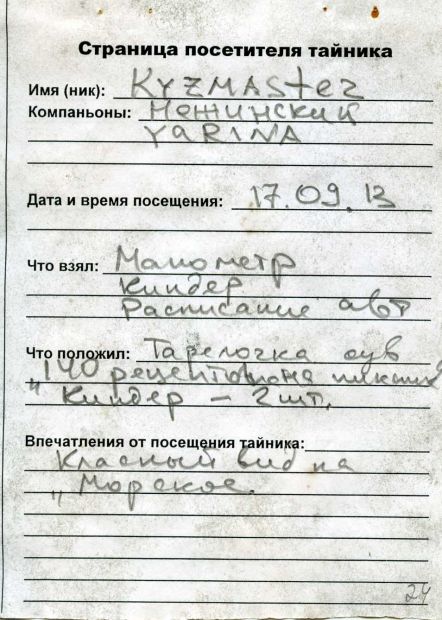 Страница посетителя тайника
Имя (ник): KYZMASTER
Компаньоны: Нежинский
YARINA
Дата и время посещения: 17.09.13
Что взял: Манометр
Киндер
Расписание авт
Что положил: Тарелочка сув
"140 рецептов
" Киндер – 2 шт.
Впечатления от посещения тайника:
Класный вид на
"Морское.
24